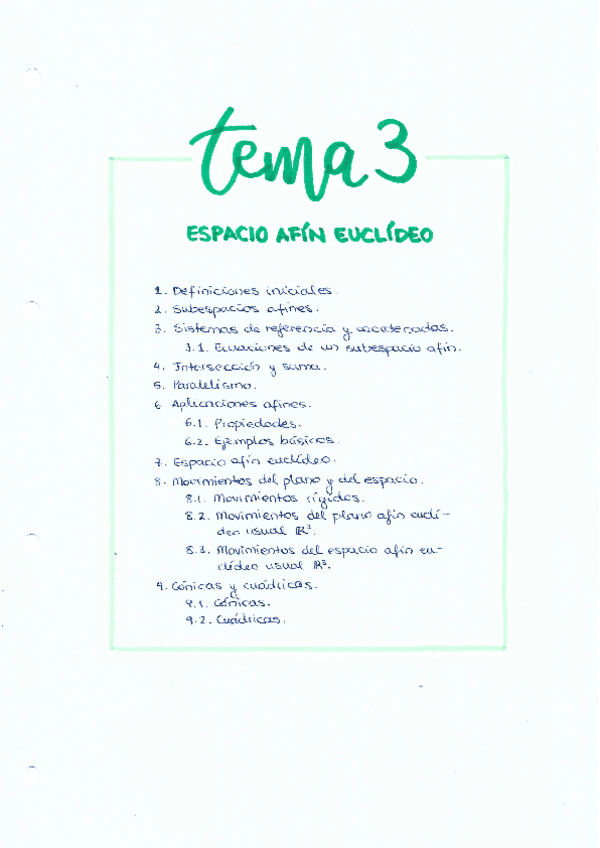 tema 3
ESPACIO AFÍN EUCLÍDEO
1. Definiciones iniciales.
2. Subespacios afines.
3. Sistemas de referencia y coordenadas.
3.1. Ecuaciones de un subespacio afín.
4. Intersección y suma.
5. Paralelismo.
6 Aplicaciones afines.
6.1. Propiedades.
6.2. Ejemplos básicos.
7. Espacio afín euclídeo.
8. Movimientos del plano y del espacio.
8.1. Movimientos rígidos.
8.2. Movimientos del plano afín euclí-
deo usual ℝ².
8.3. Movimientos del espacio afín eu-
clídeo usual ℝ³.
9. Cónicas y cuádricas.
9.1. Cónicas.
9.2. Cuádricas.